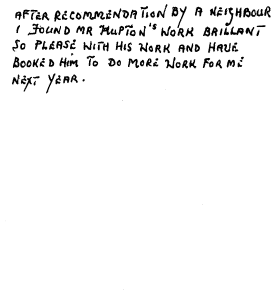 AFTER RECOMMENDATION BY A NEIGHBOUR
I FOUND MR HUPTON'S WORK BRILLANT
SO PLEASE WITH HIS WORK AND HAVE
BOOKED HIM TO DO MORE WORK FOR ME
NEXT YEAR.